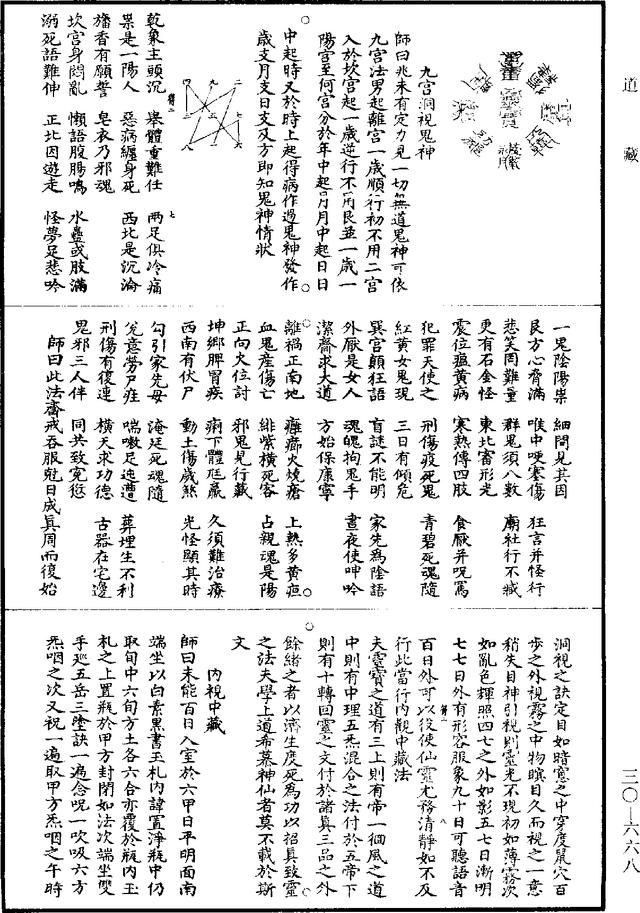 道藏
九宮洞視鬼神
師曰兆未有定力見一切無道鬼神可依
九宮法男起離宮一歲順行初不用二宮
入於坎宮起一歲逆行不用艮並一歲一
陽宮至何宮分於年中起月月中起日日
中起時又於時上起得病作過鬼神發作
歲支月支日支及方即知鬼神情狀
乾象主頭沉 舉體重難任 兩足俱冷痛
祟是一陽人 惡病纏身死 西北是沉淪
旛香有願誓 皂衣乃邪魂
坎宮身悶亂 懶語股腸鳴 水蠱或肢滿
溺死語難伸 正北因遊走 怪夢足悲吟
一鬼陰陽祟 細問見其因
艮方心脊滿 喉中哽塞傷 狂言并怪行
悲笑罔難量 群鬼須八數 廟社行不臧
更有石金怪 東北審形光
震位瘟黃病 寒熱傳四肢 食厭并呪罵
犯罪天使之 刑傷疫死鬼 青碧死魂隨
紅黃女鬼現 三日有傾危
巽宮顛狂語 盲謎不能明 家先為陰語
外厭是女人 魂魄拘鬼手 晝夜使呻吟
潔齋求大道 方始保康寧
離禍正南地 癰癤火燒瘡 上熱多黃疸
血鬼產傷亡 緋紫橫死客 占親魂是陽
正向火位討 邪鬼見行藏
坤鄉脾胃疾 痢下體尫羸 久須難治療
西南有伏尸 動土傷歲煞 光怪顯其時
勾引家先毋 淹延死魂隨
兌意勞尸疰 喘嗽足迍邅 葬埋生不利
刑傷有復連 橫天求功德 古器在宅邊
鬼邪三人伴 同共致寃愆
師曰此法齋戒吞服尅日成真周而復始
洞視之訣定目如暗室之中穿度鼠穴百
步之外視霧之中物瞚目久而視之一意
稍失目神引稅則靈光不現初如薄霧次
如亂色輝照四七之外如影五七日漸明
七七日外有形容服象九十日可聽語音
百日外可以役使仙靈尤務清靜如不及
行此當行內觀中藏法
夫靈寶之道有三上則有帝一徊風之道
中則有中理五炁混合之法付於五帝下
則有十轉回靈之文付於諸真三品之外
餘緒之者以濟生度死為功以招真致靈
之法夫學上道希慕神仙者莫不載於斯
文
內視中藏
師曰未能百日入室於六甲日平明面南
端坐以白素黑書玉札內諱置淨瓶中仍
取旬中六旬方土各六合亦覆於瓶內玉
札之上置瓶於甲方封閉如法次端坐雙
手廵五岳三塗訣一遍念呪一吹吸六方
炁咽之次又祝一遍取甲方炁咽之午時
三〇—六六八